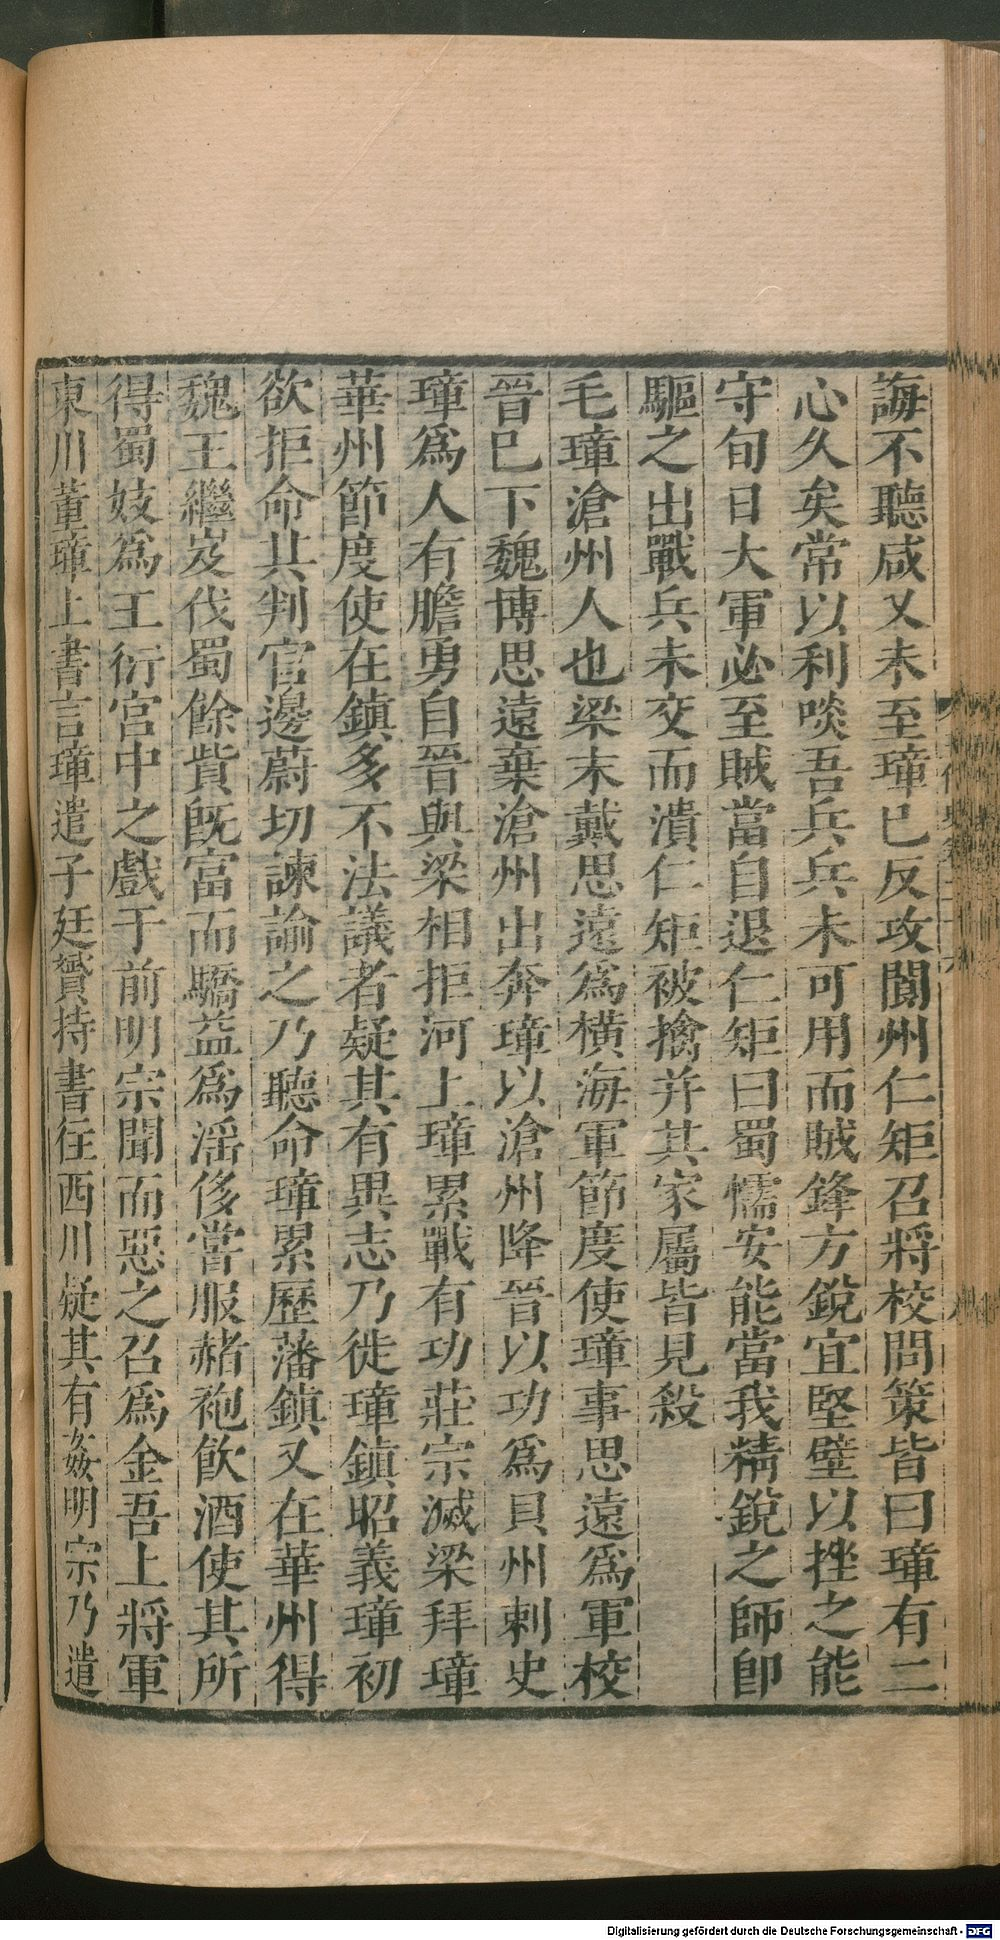 誨不聽咸乂未至璋已反攻閬州仁矩召將校問策皆曰璋有二
心久矣常以利啖吾兵兵未可用而賊鋒方銳宜堅壁以挫之能
守旬日大軍必至賊當自退仁矩曰蜀懦安能當我精銳之師卽
驅之出戰兵未交而潰仁矩被擒并其家屬皆見殺
毛璋滄州人也梁末戴思遠爲橫海軍節度使璋事思遠爲軍校
晉已下魏博思遠棄滄州出奔璋以滄州降晉以功爲貝州刺史
璋爲人有膽勇自晉與梁相拒河上璋累戰有功莊宗滅梁拜璋
華州節度使在鎮多不法議者疑其有異志乃徙璋鎮昭義璋初
欲拒命其判官邊蔚切諫諭之乃聽命璋累歷藩鎮又在華州得
魏王繼岌伐蜀餘貲旣富而驕益爲淫侈嘗服赭袍飮酒使其所
得蜀妓爲王衍宮中之戲于前明宗聞而惡之召爲金吾上將軍
東川董璋上書言璋遣子廷贇持書往西川疑其有姦明宗乃遣
Digitalisierung gefördert durch die Deutsche Forschungsgemeinschaft - DFG